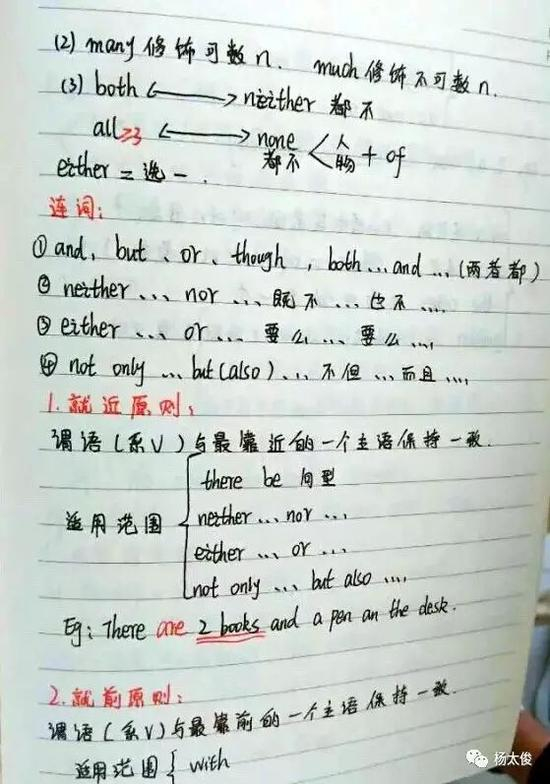 (2) many 修饰可数n. much 修饰不可数n.
(3) both ⟵⟶ neither 都不
all≥3 ⟵⟶ none 都不 < 人 物 + of
either 二选一.
连词:
① and, but、or、though, both...and...(两者都)
② neither ... nor ... 既不 ... 也不 ....
③ either ... or ... 要么 ... 要么 ....
④ not only ... but (also) ... 不但 ... 而且 ....
1.就近原则:
谓语(系V)与最靠近的一个主语保持一致.
适用范围 {
there be 句型
neither ... nor ...
either ... or ...
not only ... but also ....
Eg: There are 2 books and a pen an the desk.
2.就前原则:
谓语(系V)与最靠前的一个主语保持一致.
适用范围 { with
杨太俊